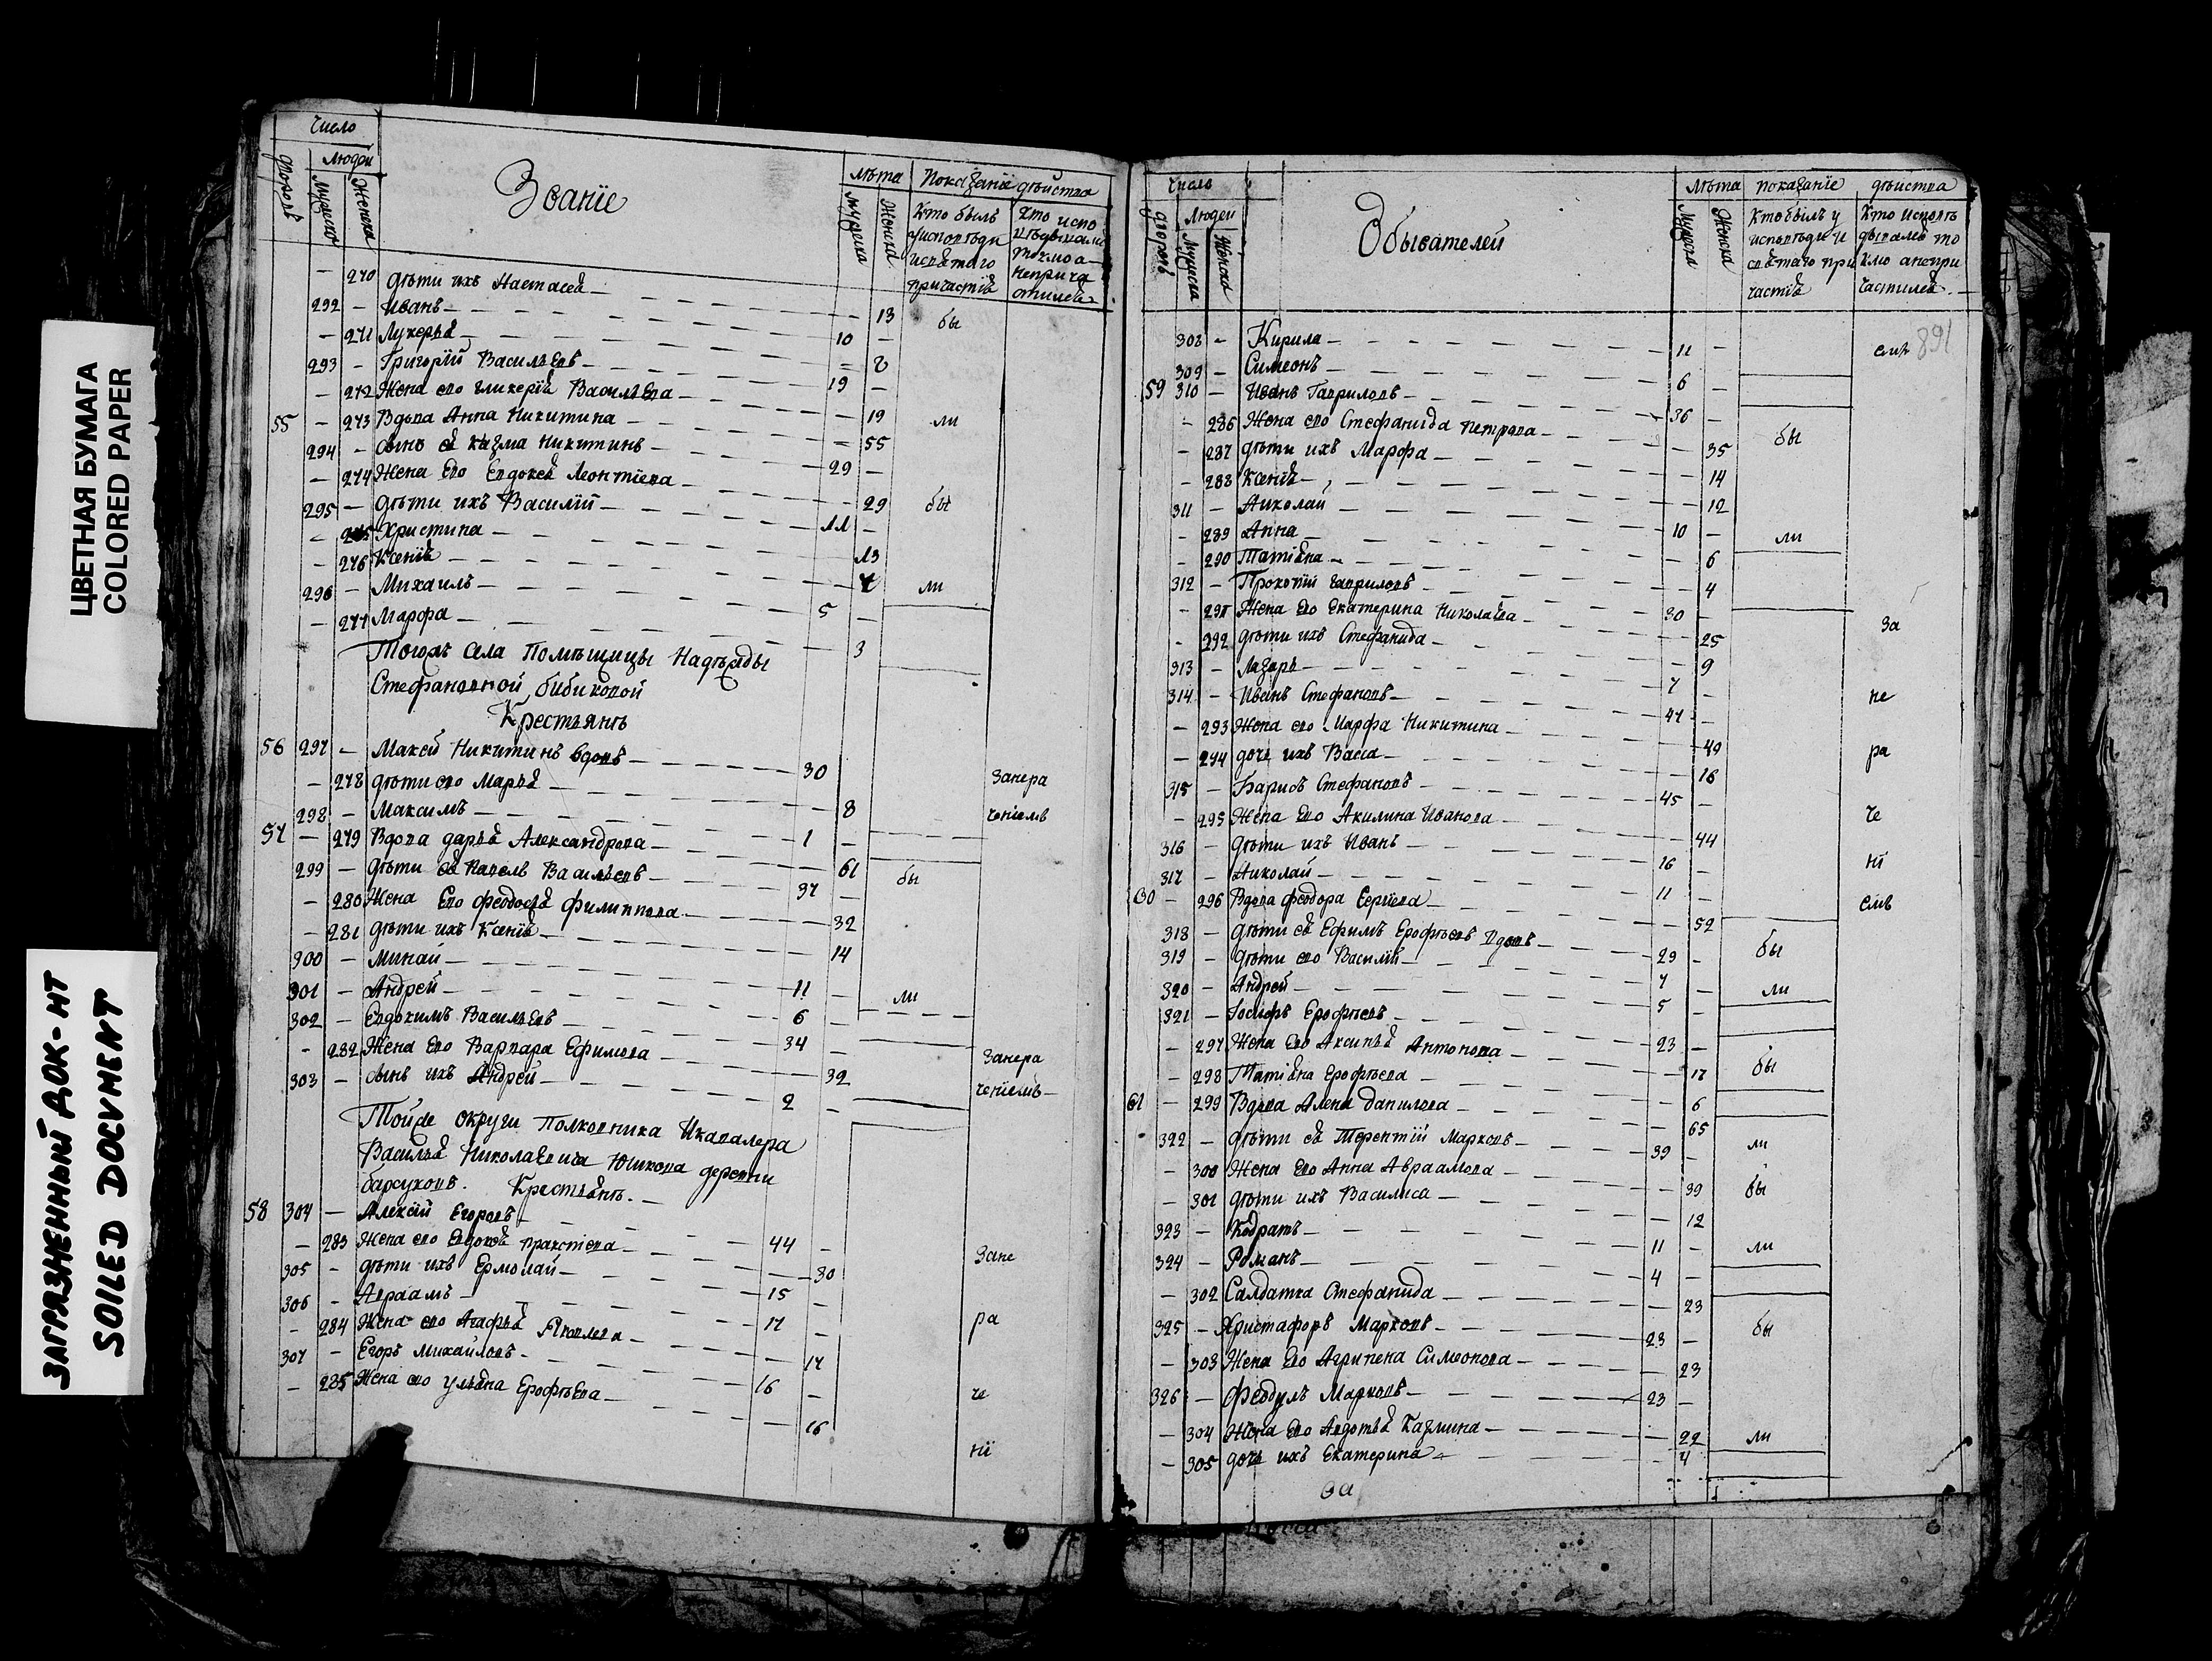 ЦВЕТНАЯ БУМАГА
COLORED PAPER
ЗАГРЯЗНЕННЫЙ ДОК-НТ
SOILED DOCUMENT
Число
Людей
дворовъ
Мужеска
Женска
Званїе
лѣта
мужеска
Женска
Показанїе дѣиства
Кто былъ
уисповѣди
исвѣтаго
причастїѧ
Кто испо
вѣдывался
токмо а
неприча
стился
– 270 дѣти ихъ Настасеѧ – 13
292 – Иванъ – 10 – бы
– 271 Лукерьѧ – 8
293 – Григорїй Васильевъ – 19 –
– 272 Жена его гликерїѧ Васильева – 19
55 – 273 Вдова Анна Никитина – 55 ли
294 – сынъ еѧ казма Никитинъ – 29 –
– 274 Жена Его Евдокеѧ Леонтїева – 29
295 – дѣти ихъ Василїй – 11 – бы
– 275 Христина – 13
– 276 Ксенїѧ – 7
296 – Михаилъ – 5 – ли
– 277 Марфа – 3
Тогожъ села Помѣщицы Надѣжды
Стефановной бибиковой
Крестьянъ
56 297 – Макей Никитинъ вдовъ – 30
– 278 дѣти его Марьѧ – 8 занера
298 – Максимъ – 1 – ченїемъ
57 – 279 Вдова дарьѧ Александрова – 61
299 – дѣти еѧ Павелъ Васильевъ – 37 – бы
– 280 Жена Его феодосьѧ филиппова – 32
– 281 дѣти ихъ Ксенїѧ – 14
300 – Минай – 11 –
301 – Андрей – 6 – ли
302 – Евдокимъ Васильевъ – 34 –
– 282 Жена Его Варвара Ефимова – 32 занера
303 – сынъ ихъ Андрей – 2 – ченїемъ
Тойже округи Полковника Икавалера
Васильѧ Николаевича Юшкова деревни
барсуковъ. Крестьѧнъ.
58 304 – Алексѣй Егоровъ – 44 –
– 283 Жена его Евдокеѧ – 30 Зане
305 – дѣти ихъ Ермолай – 15 –
306 – Авраамъ – 17 –
– 284 Жена его Агафьѧ Яковлева – 17 ра
307 – Егоръ Михайловъ – 16 –
– 285 Жена его ульѧна Ерофѣева – 16 че
нї
Число
Людей
дворовъ
Мужеска
Женска
Обывателей
Лѣта
Мужеска
Женска
показанїе дѣиства
Кто былъ у
исповѣди и
свѣтаго при
частїѧ
Кто исповѣ
дывался то
кмо анепри
частился
891
308 – Кирила – 11 – емъ
309 – Симеонъ – 6 –
59 310 – Иванъ Гавриловъ – 36 –
– 286 Жена его Стефанида петрова – 35 бы
– 287 дѣти ихъ Марфа – 14
– 288 Ксенїѧ – 12
311 – Николай – 10 –
– 289 Анна – 6 ли
– 290 Татиѧна – 4
312 – Прокопїй гавриловъ – 30 –
– 291 Жена Его Екатерина Николаева – 25 За
– 292 дѣти ихъ Стефанида – 9
313 – Лазарь – 7 –
314 – Иванъ Стефановъ – 47 – не
– 293 Жена его Марфа Никитина – 49
– 294 дочь ихъ Васса – 16 ра
315 – Барисъ Стефановъ – 45 –
– 295 Жена Его Акилина Иванова – 44 че
316 – дѣти ихъ Иванъ – 16 –
317 – Николай – 11 – нї
60 – 296 Вдова феодора Сергїева – 52 емъ
318 – дѣти еѧ Ефимъ Ерофѣевъ вдовъ – 29 –
319 – дѣти его Василїй – 7 – бы
320 – Андрей – 5 – ли
321 – Іосифъ Ерофѣевъ – 23 –
– 297 Жена Его Аксиньѧ Антонова – 17
– 298 Татиѧна Ерофѣева – 6 бы
61 – 299 Вдова Алена Данилова – 65
322 – дѣти еѧ Терентїй Марковъ – 39 – ли
– 300 Жена Его Анна Авраамова – 39
– 301 дѣти ихъ Василиса – 12 бы
323 – Кодратъ – 11 –
324 – Романъ – 4 – ли
– 302 Салдатка Стефанида – 23
325 – Христафоръ Марковъ – 23 – бы
– 303 Жена Его Агрипена Симеонова – 23
326 – Феодулъ Марковъ – 23 –
– 304 Жена Его Авдотьѧ Казмина – 22 ли
– 305 дочь ихъ Екатерина – 4